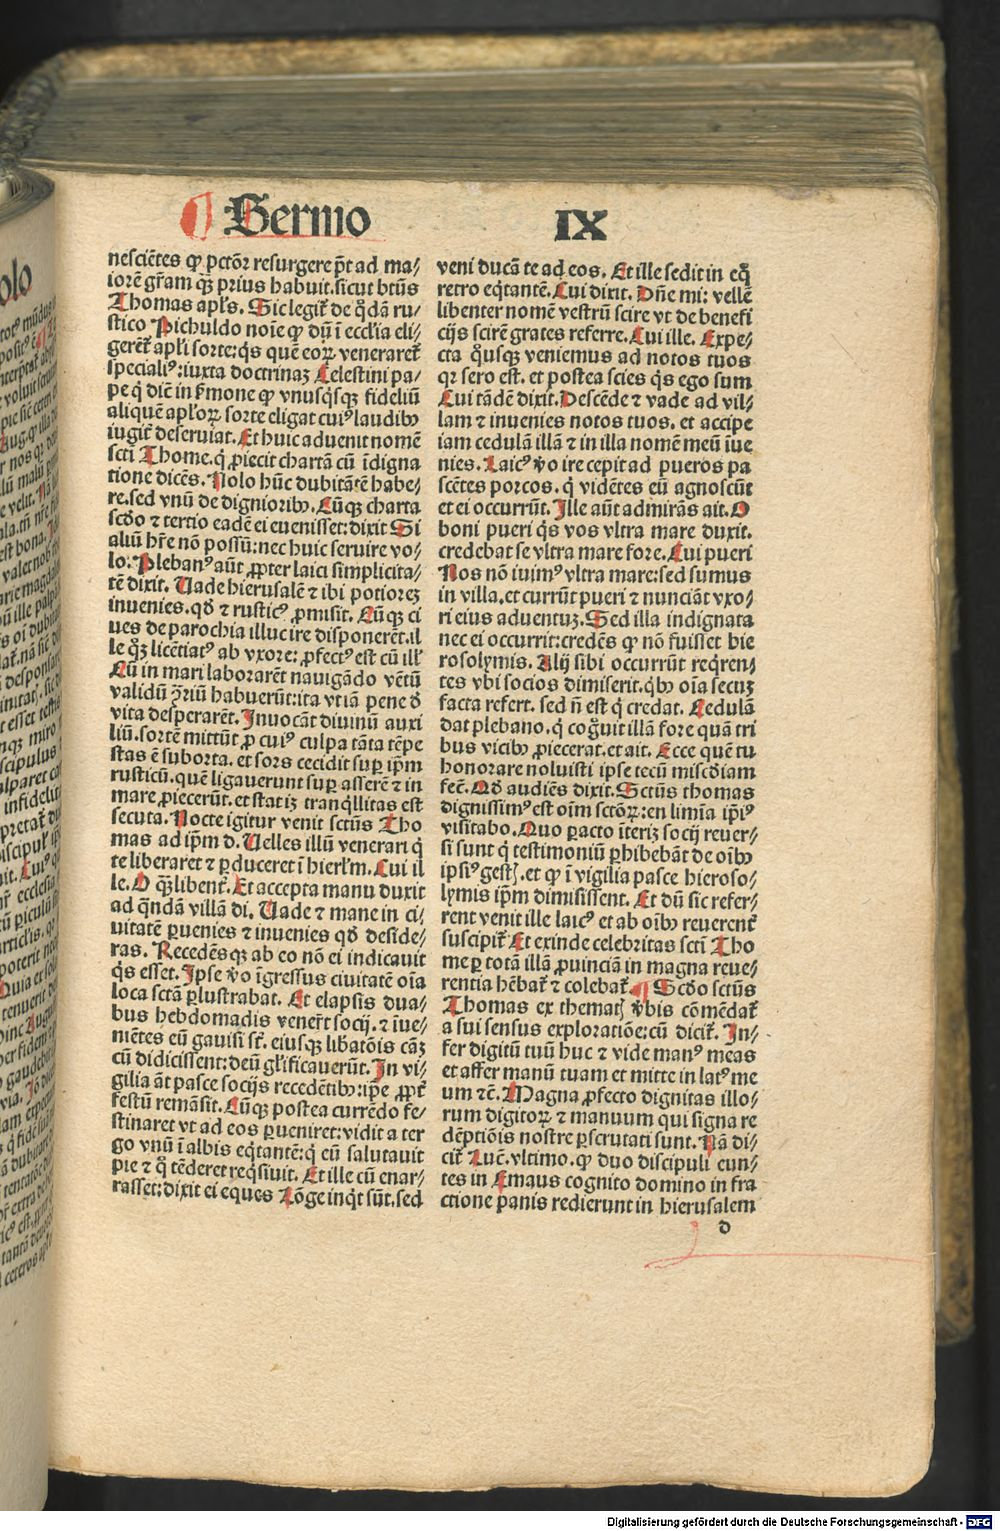 Sermo IX
nesciētes ꝙ pctōꝛ resurgere pt̄ ad ma⸗
ioꝛē gr̄am qͣꝫ pꝛius habuit. sicut btūs
Thomas apl's. Sic legit̄ de qͦdā ru⸗
stico Pichuldo noīe ꝙ dū ī eccl'ia eli⸗
gerēt̄ apl'i soꝛte: qͥs quē eoꝝ veneraret̄
speciali⁹: iuxta doctrinaꝫ Celestini pa⸗
pe q̇ dīc in ẜmone ꝙ vnusqͥsqꝫ fideliū
aliquē apl'oꝝ soꝛte eligat cui⁹ laudibꝰ
iugit̄ deseruiat. Et huic aduenit nomē
scti Thome. q̇ ꝓiecit chartā cū īdigna
tione dicēs. Nolo hūc dubitātē habe⸗
re. sed vnū de dignioribꝰ. Cūqꝫ charta
scd̄o ⁊ tertio eadē ei euenisset: dixit Si
aliū hr̄e nō possū: nec huic seruire vo⸗
lo. Pleban⁹ aūt ꝓpter laici simplicita⸗
tē dixit. Uade hierusalē ⁊ ibi potioꝛeꝫ
inuenies. qd̄ ⁊ rustic⁹ ꝓmisit. Cūqꝫ ci
ues de parochia illuc ire disponerēt. il
le qꝫ licētiat⁹ ab vxoꝛe: ꝓfect⁹ est cū ill'
Cū in mari laboꝛarēt nauigādo vētū
validū ꝯ̄riū habuerūt: ita vt iā pene d̄
vita desperarēt. Inuocāt diuinū auxi
liū. soꝛtē mittūt ꝓ cui⁹ culpa tāta tēpe
stas ē suboꝛta. et soꝛs cecidit suꝑ ip̄m
rusticū. quē ligauerunt suꝑ asserē ⁊ in
mare ꝓiecerūt. et statiꝫ tranqͥllitas est
secuta. Nocte igitur venit sctūs Tho
mas ad ip̄m d. Uelles illū venerari q̇
te liberaret ⁊ ꝑduceret ī hierl'm. Cui il
le. O qͣꝫ libent̄. Et accepta manu duxit
ad qͣndā villā di. Uade ⁊ mane in ci⸗
uitatē ꝑuenies ⁊ inuenies qd̄ deside⸗
ras. Recedēsqꝫ ab eo nō ei indicauit
qͥs esset. Ipse v̄o īgressus ciuitatē oīa
loca sctā ꝑlustrabat. Et elapsis dua⸗
bus hebdomadis venerūt socij. ⁊ īue⸗
niētes eū gauisi st̄. eiusqꝫ libatōis cāꝫ
cū didicissent: deū gl'ificauerūt. In vi⸗
gilia āt pasce socijs recedētibꝰ: ip̄e ꝓpt̄
festū remāsit. Cūqꝫ postea currēdo fe⸗
stinaret vt ad eos ꝑueniret: vidit a ter
go vnū ī albis eqͥtantē: q̇ eū salutauit
pie ⁊ qͦ tēderet reqͥsiuit. Et ille cū enar⸗
rasset: dixit ei eques Lōge inqͥt sūt. sed
veni ducā te ad eos. Et ille sedit in eqͦ
retro eqͥtantē. Cui dixit. Dn̄e mi: vellē
libenter nomē vestrū scire vt de benefi
cijs scirē grates referre. Cui ille. Expe⸗
cta qͦusqꝫ veniemus ad notos tuos
qꝛ sero est. et postea scies qͥs ego sum
Cui tādē dixit. Descēde ⁊ vade ad vil⸗
lam ⁊ inuenies notos tuos. et accipe
iam cedulā illā ⁊ in illa nomē meū iue
nies. Laic⁹ v̄o ire cepit ad pueros pa
scētes poꝛcos. q̇ vidētes eū agnoscūt
et ei occurrūt. Ille aūt admirās ait. O
boni pueri qͥs vos vltra mare duxit.
credebat se vltra mare foꝛe. Cui pueri
Nos nō iuim⁹ vltra mare: sed sumus
in villa. et currūt pueri ⁊ nunciāt vxo⸗
ri eius aduentuꝫ. Sed illa indignata
nec ei occurrit: credēs ꝙ nō fuisset hie
rosolymis. Alij sibi occurrūt reqͥren⸗
tes vbi socios dimiserit. qͥbꝰ oīa secuꝫ
facta refert. sed n̄ est q̇ credat. Cedulā
dat plebano. q̇ cogͦuit illā foꝛe quā tri
bus vicibꝰ ꝓiecerat. et ait. Ecce quē tu
honoꝛare noluisti ipse tecū misc̄diam
fec̄. Qd̄ audiēs dixit. Sctūs thomas
dignissim⁹ est oīm sctōꝝ: en limīa ip̄i⁹
visitabo. Quo ꝑacto īteriꝫ socij reuer⸗
si sunt q̇ testimoniū ꝑhibebāt de oībꝰ
ipsi⁹ gestꝭ. et ꝙ ī vigilia pasce hieroso⸗
lymis ip̄m dimisissent. Et dū sic refer⸗
rent venit ille laic⁹ et ab oībꝰ reuerent̄
suscipit̄ Et exinde celebꝛitas scti Tho
me ꝑ totā illā ꝓuinciā in magna reue⸗
rentia hēbat̄ ⁊ colebat̄. ¶ Scd̄o sctūs
Thomas ex thematꝭ v̄bis cōmēdat̄
a sui sensus exploꝛatiōe: cū dicit̄. In⸗
fer digitū tuū huc ⁊ vide man⁹ meas
et affer manū tuam et mitte in lat⁹ me
um ⁊c̄. Magna ꝓfecto dignitas illo⸗
rum digitoꝝ ⁊ manuum qui signa re
dēptiōis nostre ꝑscrutati sunt. Nā di⸗
cit̄ Luc̄. vltimo. ꝙ duo discipuli eun⸗
tes in Emaus cognito domino in fra
ctione panis redierunt in hierusalem
d
Digitalisierung gefördert durch die Deutsche Forschungsgemeinschaft - DFG